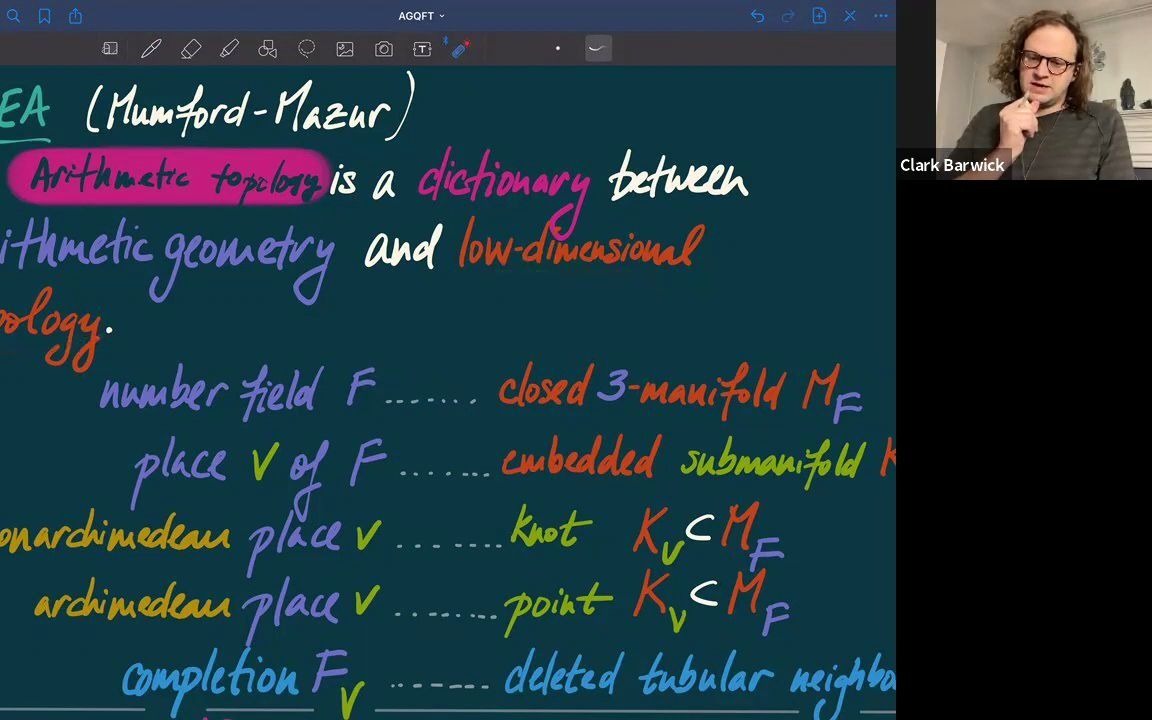 AGQFT
EA (Mumford-Mazur)
Arithmetic topology is a dictionary between
ithmetic geometry and low-dimensional
ology.
number field F ....... closed 3-manifold M_F
place v of F ....... embedded submanifold K
onarchimedean place v ........ knot K_v ⊂ M_F
archimedean place v ....... point K_v ⊂ M_F
completion F_v ....... deleted tubular neighbo
Clark Barwick